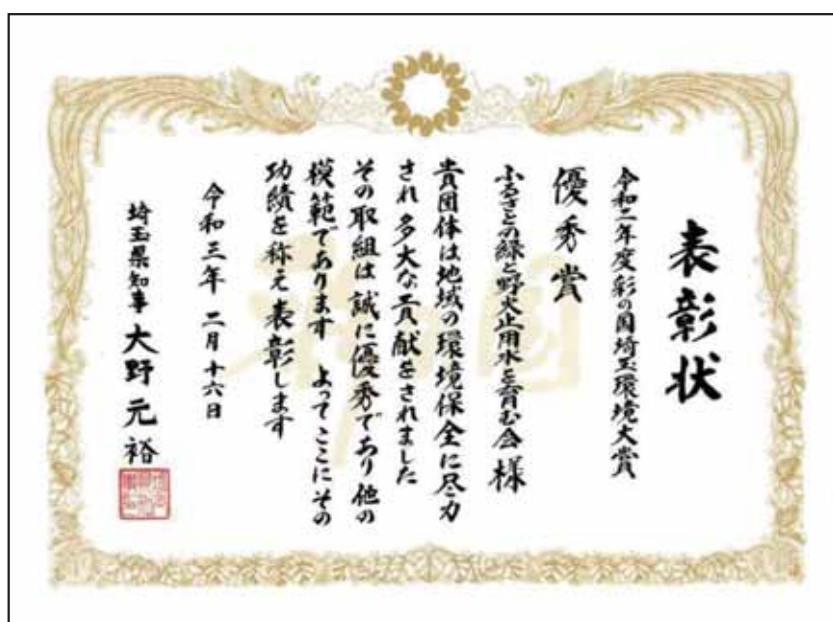 表彰状
令和二年度彩の国埼玉環境大賞
優秀賞
ふるさとの緑と野火止用水を育む会 様
貴団体は地域の環境保全に尽力
され多大な貢献をされました
その取組は誠に優秀であり他の
模範であります よってここにその
功績を称え表彰します
令和三年 二月十六日
埼玉県知事 大野元裕